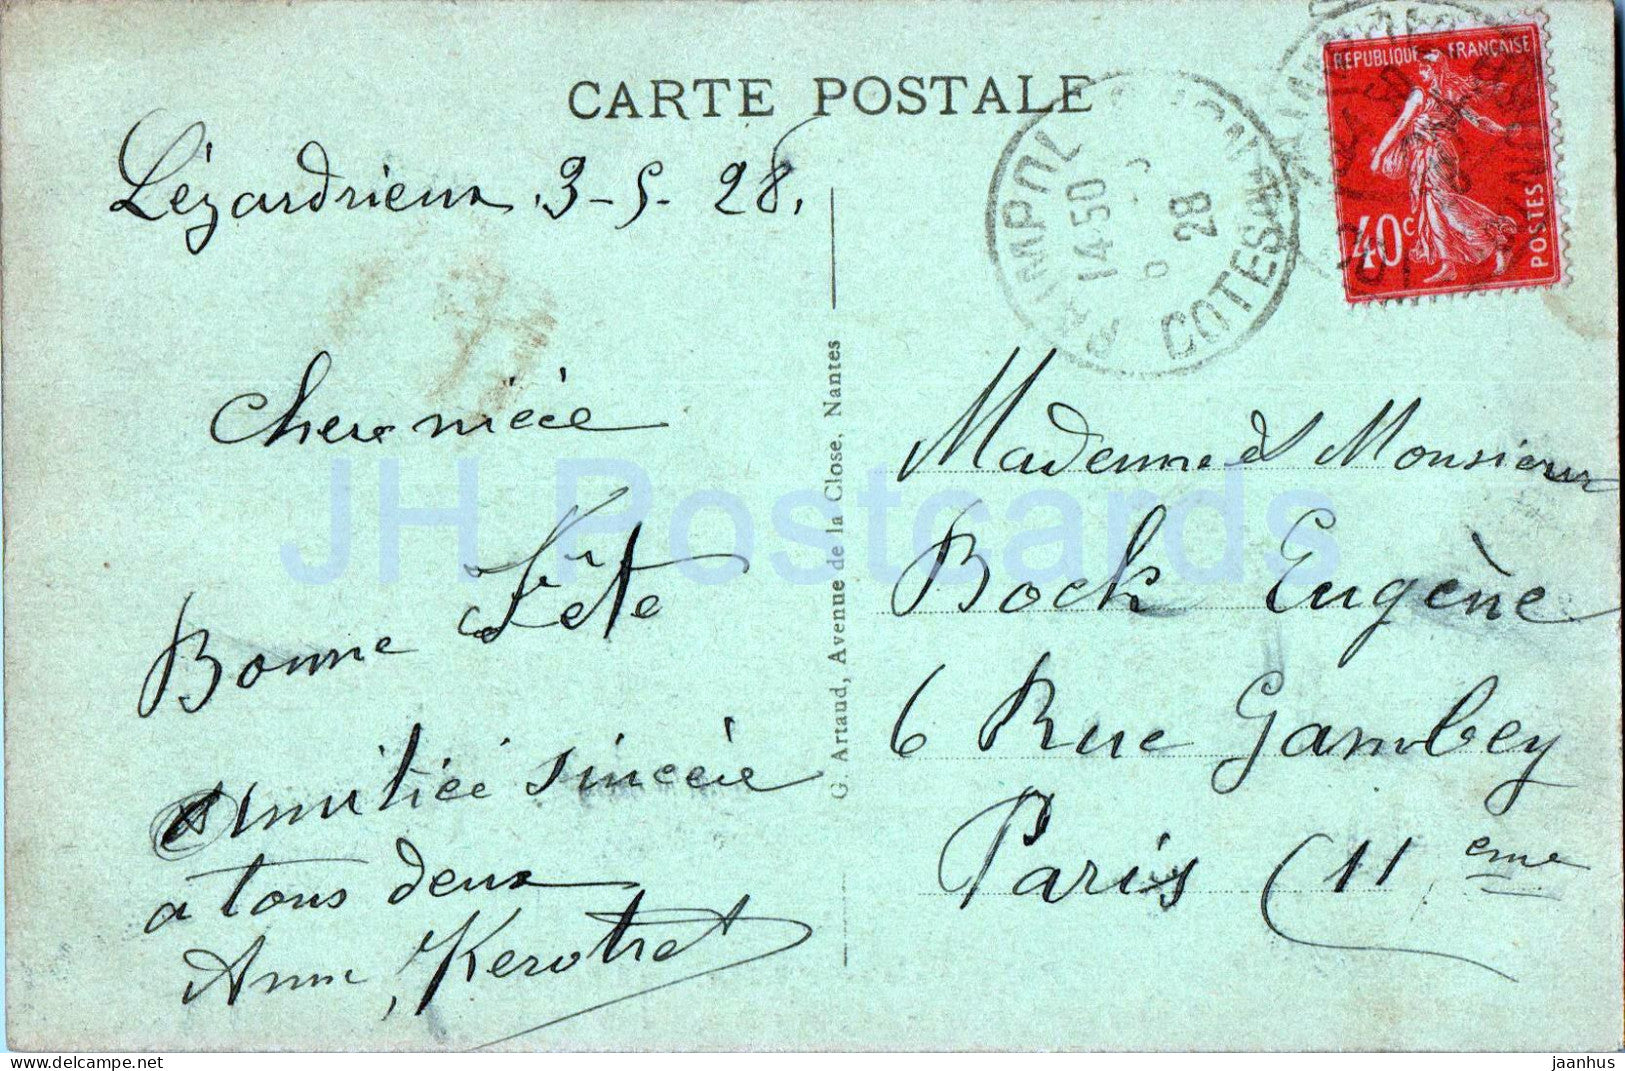 CARTE POSTALE
Lézardrieux 3-5-28.
Chere niéce
Bonne Fête
amitiéé sincére
a tous deux
Anne Kerotret
G. Artaud, Avenue de la Close, Nantes
PAIMPOL
14 50
28
COTES
REPUBLIQUE FRANÇAISE
40c
POSTES
Madame et Monsieur
Bock Eugène
6 Rue Gambey
Paris (11 eme
JH Postcards
delcampe.net
jaanhus